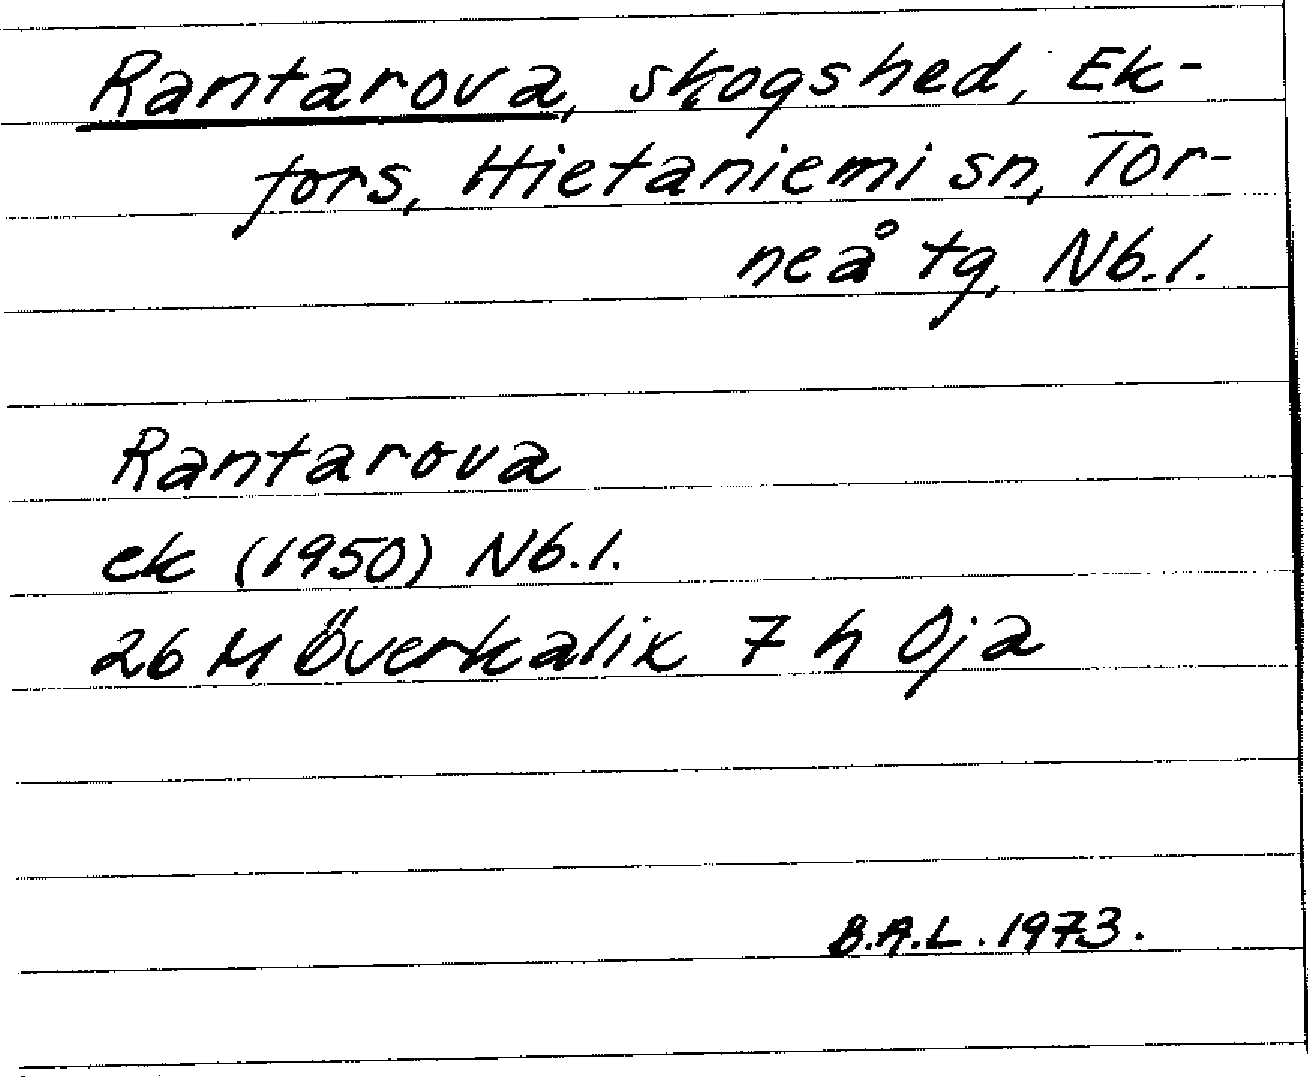 Rantarova, skogshed, Ek-
fors, Hietaniemi sn, Tor-
neå tg, Nb.l.
Rantarova
ek (1950) Nb.l.
26 M Överkalix 7 h Oja
B.A.L. 1973.